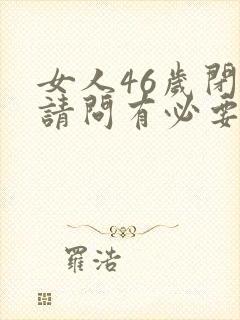 女人46歲閉
請問有必要
羅浩